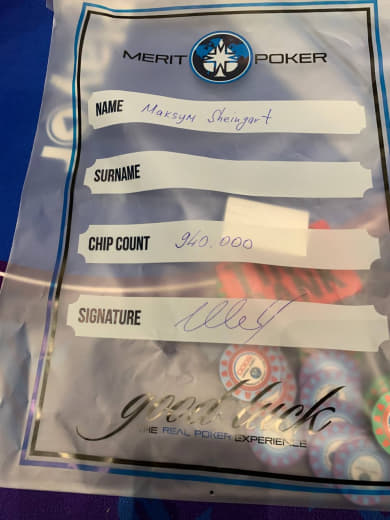 MERIT POKER
NAME Maksym Sheingart
SURNAME
CHIP COUNT 940.000
SIGNATURE
good luck
THE REAL POKER EXPERIENCE